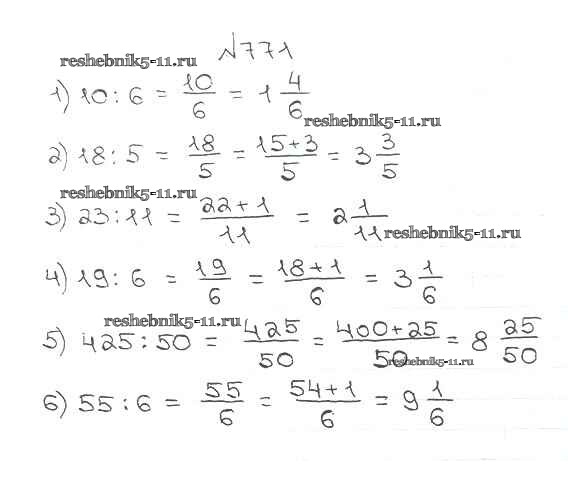 №771
reshebnik5-11.ru
1) 10 : 6 = 10/6 = 1 4/6
reshebnik5-11.ru
2) 18 : 5 = 18/5 = 15+3/5 = 3 3/5
reshebnik5-11.ru
3) 23 : 11 = 22+1/11 = 2 1/11
reshebnik5-11.ru
4) 19 : 6 = 19/6 = 18+1/6 = 3 1/6
reshebnik5-11.ru
5) 425 : 50 = 425/50 = 400+25/50 = 8 25/50
reshebnik5-11.ru
6) 55 : 6 = 55/6 = 54+1/6 = 9 1/6